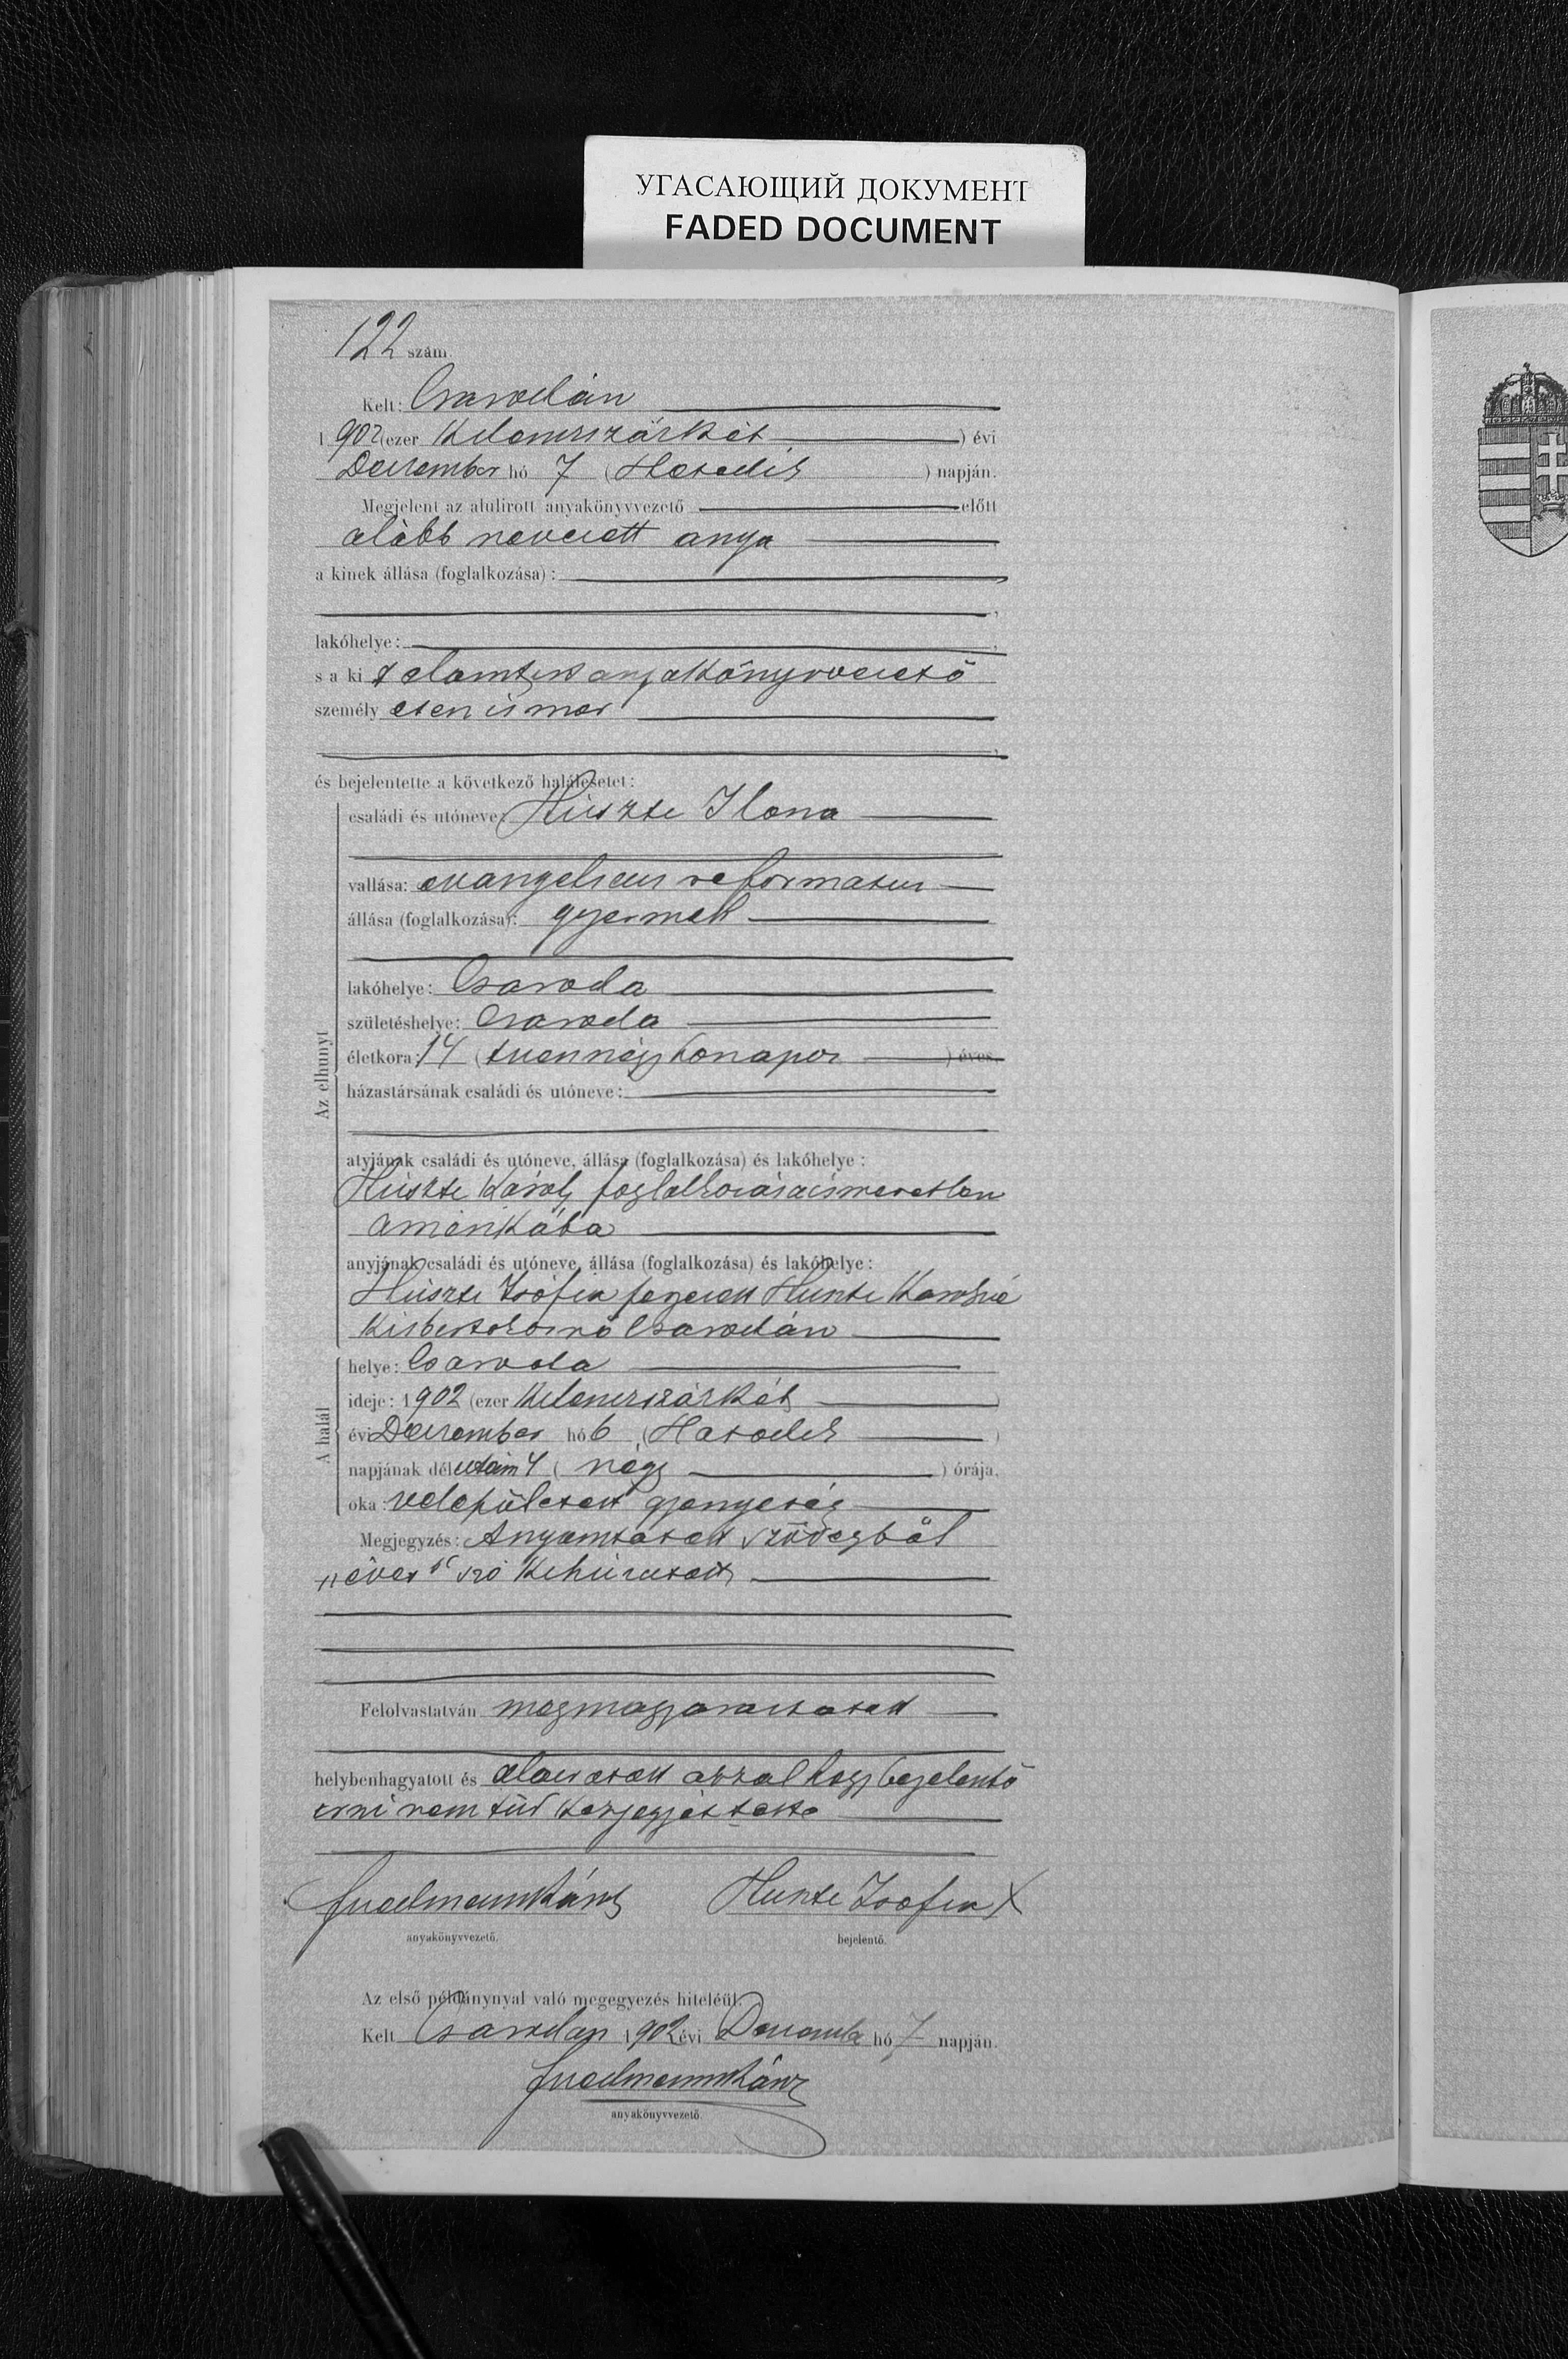 УГАСАЮЩИЙ ДОКУМЕНТ
FADED DOCUMENT
122 szám
Kelt: Csarodán
1902 (ezer kilencszázkét ) évi
December hó 7 (Hetedik ) napján.
Megjelent az alulirott anyakönyvvezető előtt
alább nevezett anya
a kinek állása (foglalkozása):
lakóhelye:
s a ki anyakönyvvezető
személyesen ismer
és bejelentette a következő halálesetet:
Az elhunyt
családi és utóneve: Huszti Ilona
vallása: evangelicus reformatus
állása (foglalkozása): gyermek
lakóhelye: Csaroda
születéshelye: Csaroda
életkora: 14 (tizennégy hónapos ) éves,
házastársának családi és utóneve:
atyjának családi és utóneve, állása (foglalkozása) és lakóhelye:
Huszti Károly foglalkozása ismeretlen
Amerikába
anyjának családi és utóneve, állása (foglalkozása) és lakóhelye:
Huszti Zsófia Huszti Károlyné
kisbirtokosnő Csarodán
A halál
helye: Csaroda
ideje: 1902 (ezer kilencszázkét )
évi December hó 6 (Hatodik )
napjának délután 4 (négy ) órája,
oka: veleszületett gyengeség
Megjegyzés: A nyomtatott szövegből
„éves“ szó kihúzatott
Felolvastatván megmagyaráztatott
helybenhagyatott és aláiratott azzal hogy bejelentő
irni nem tud kézjegyét tette
anyakönyvvezető.
Huszti Zsófia X
bejelentő.
Az első példánynyal való megegyezés hiteléül.
Kelt Csarodán 1902 évi December hó 7 napján.
anyakönyvvezető.